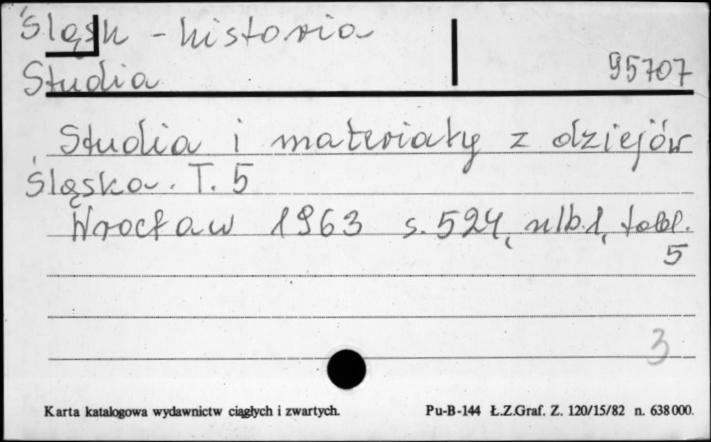 Śląsk - historia
Studia 95707
Studia i materiały z dziejów
Śląska. T. 5
Wrocław 1963 s. 524, nlb.1, tabl.
5
3
Karta katalogowa wydawnictw ciągłych i zwartych. Pu-B-144 Ł.Z.Graf. Z. 120/15/82 n. 638000.